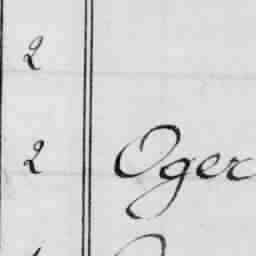 2
2 Oger